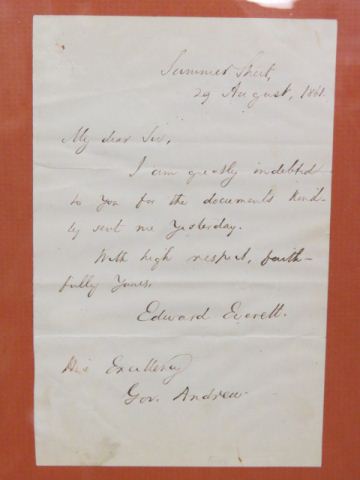 Summer Street,
29 August, 1861.
My dear Sir,
I am greatly indebted
to you for the documents kind-
ly sent me yesterday.
With high respect, faith-
fully Yours,
Edward Everett.
His Excellency
Gov. Andrew